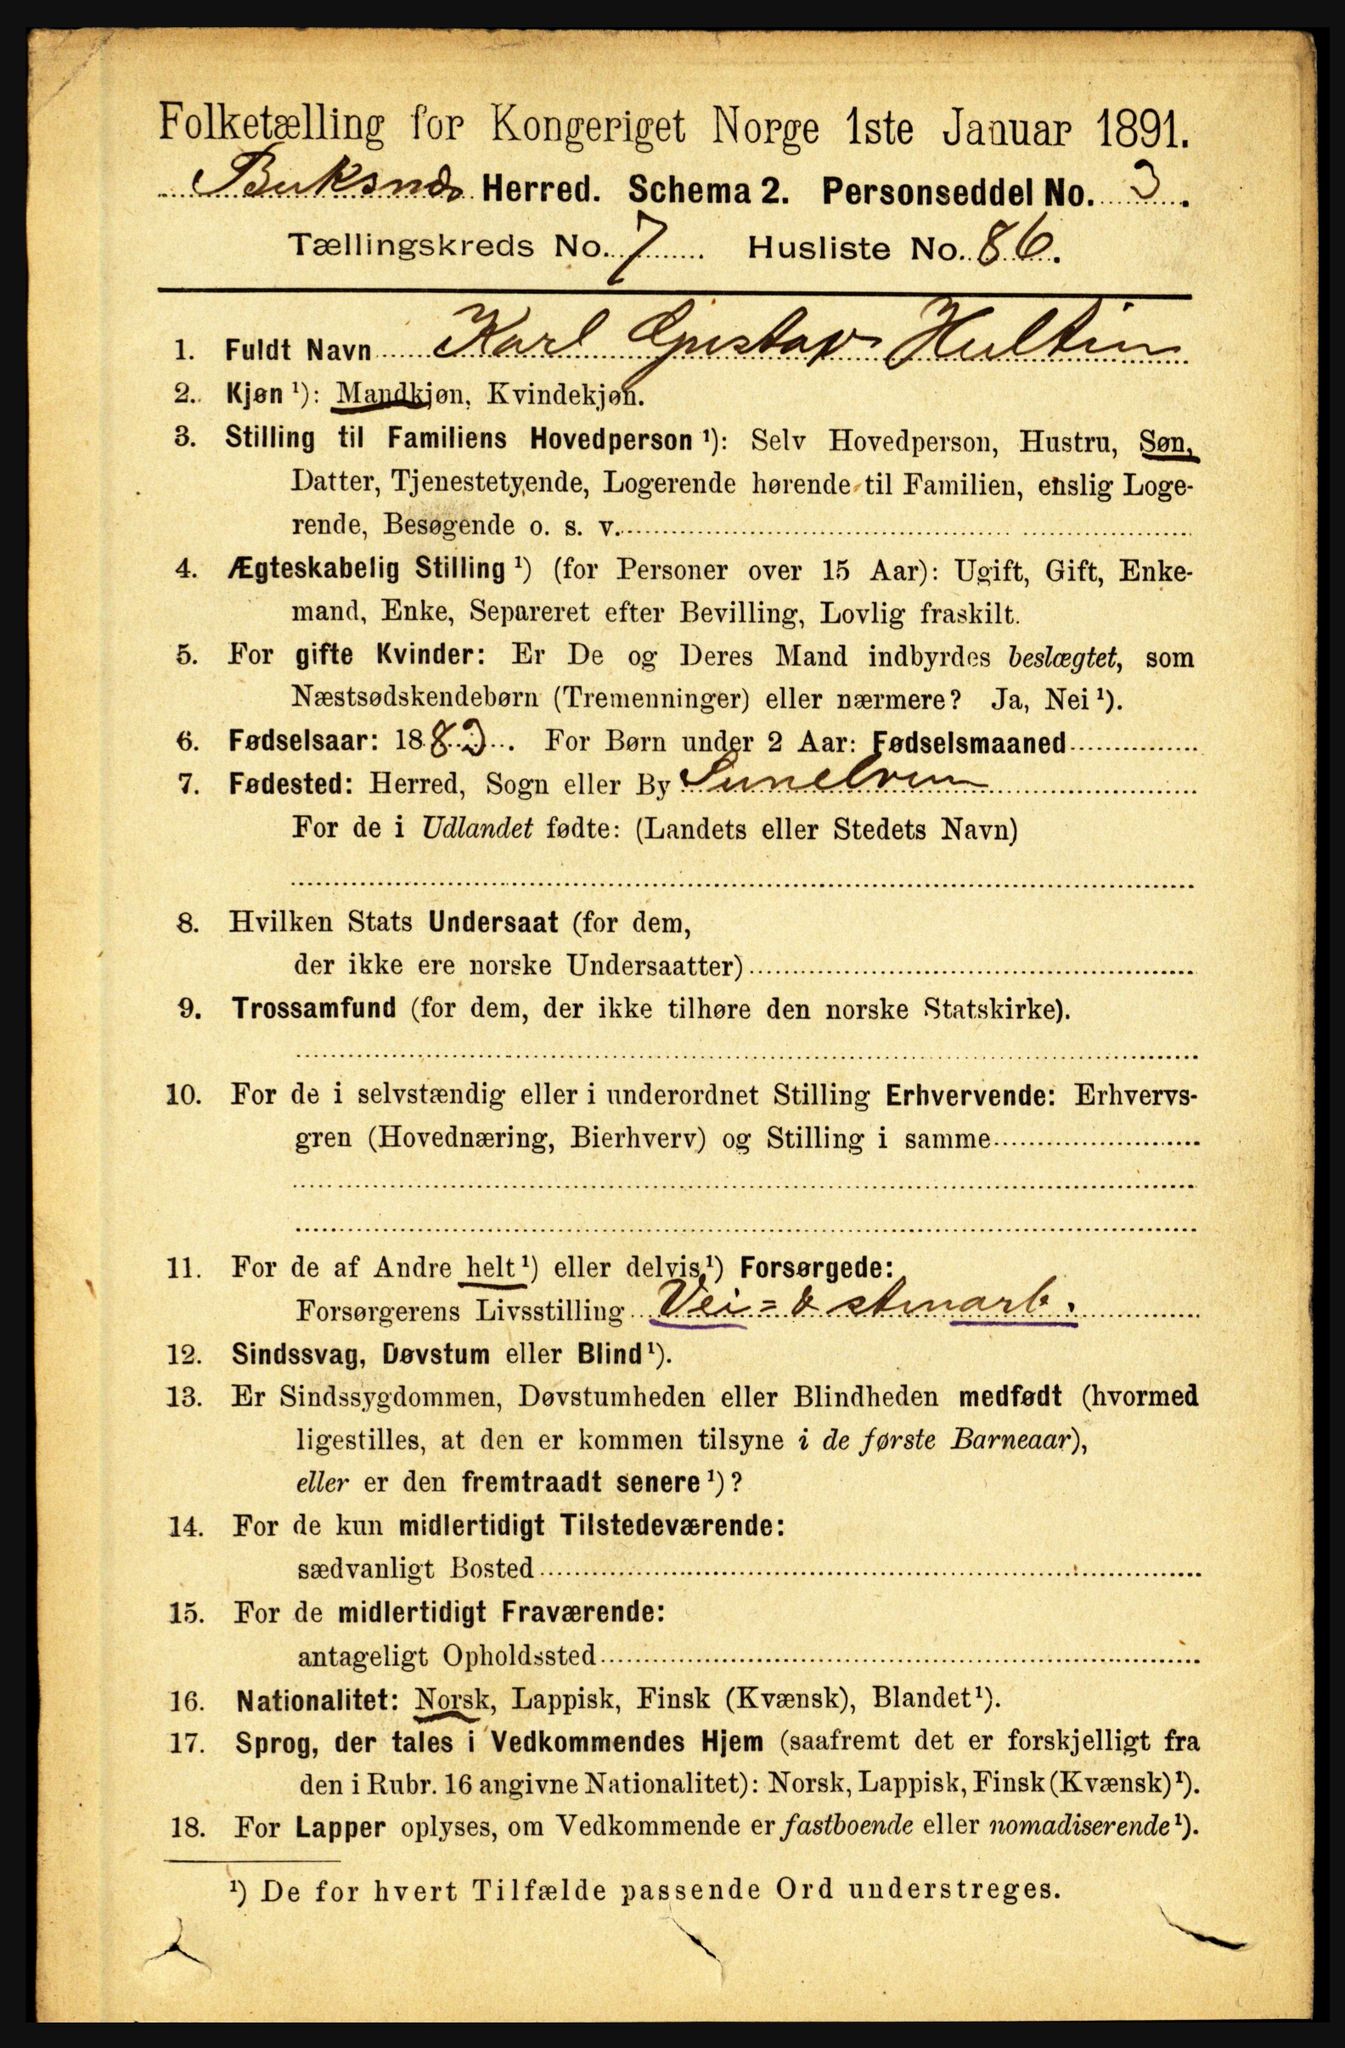 Folketælling for Kongeriget Norge 1ste Januar 1891.
Buksnæs Herred. Schema 2. Personseddel No. 3.
Tællingskreds No. 7 Husliste No. 86.
1. Fuldt Navn Karl Gustav Hultin
2. Kjøn ¹): Mandkjøn, Kvindekjøn.
3. Stilling til Familiens Hovedperson ¹): Selv Hovedperson, Hustru, Søn,
Datter, Tjenestetyende, Logerende hørende til Familien, enslig Loge-
rende, Besøgende o. s. v.
4. Ægteskabelig Stilling ¹) (for Personer over 15 Aar): Ugift, Gift, Enke-
mand, Enke, Separeret efter Bevilling, Lovlig fraskilt.
5. For gifte Kvinder: Er De og Deres Mand indbyrdes beslægtet, som
Næstsødskendebørn (Tremenninger) eller nærmere? Ja, Nei ¹).
6. Fødselsaar: 1883. For Børn under 2 Aar: Fødselsmaaned
7. Fødested: Herred, Sogn eller By Sunelven
For de i Udlandet fødte: (Landets eller Stedets Navn)
8. Hvilken Stats Undersaat (for dem,
der ikke ere norske Undersaatter)
9. Trossamfund (for dem, der ikke tilhøre den norske Statskirke).
10. For de i selvstændig eller i underordnet Stilling Erhvervende: Erhvervs-
gren (Hovednæring, Bierhverv) og Stilling i samme
11. For de af Andre helt ¹) eller delvis ¹) Forsørgede:
Forsørgerens Livsstilling Vei= & stenarb.
12. Sindssvag, Døvstum eller Blind ¹).
13. Er Sindssygdommen, Døvstumheden eller Blindheden medfødt (hvormed
ligestilles, at den er kommen tilsyne i de første Barneaar),
eller er den fremtraadt senere ¹)?
14. For de kun midlertidigt Tilstedeværende:
sædvanligt Bosted
15. For de midlertidigt Fraværende:
antageligt Opholdssted
16. Nationalitet: Norsk, Lappisk, Finsk (Kvænsk), Blandet ¹).
17. Sprog, der tales i Vedkommendes Hjem (saafremt det er forskjelligt fra
den i Rubr. 16 angivne Nationalitet): Norsk, Lappisk, Finsk (Kvænsk) ¹).
18. For Lapper oplyses, om Vedkommende er fastboende eller nomadiserende ¹).
¹) De for hvert Tilfælde passende Ord understreges.